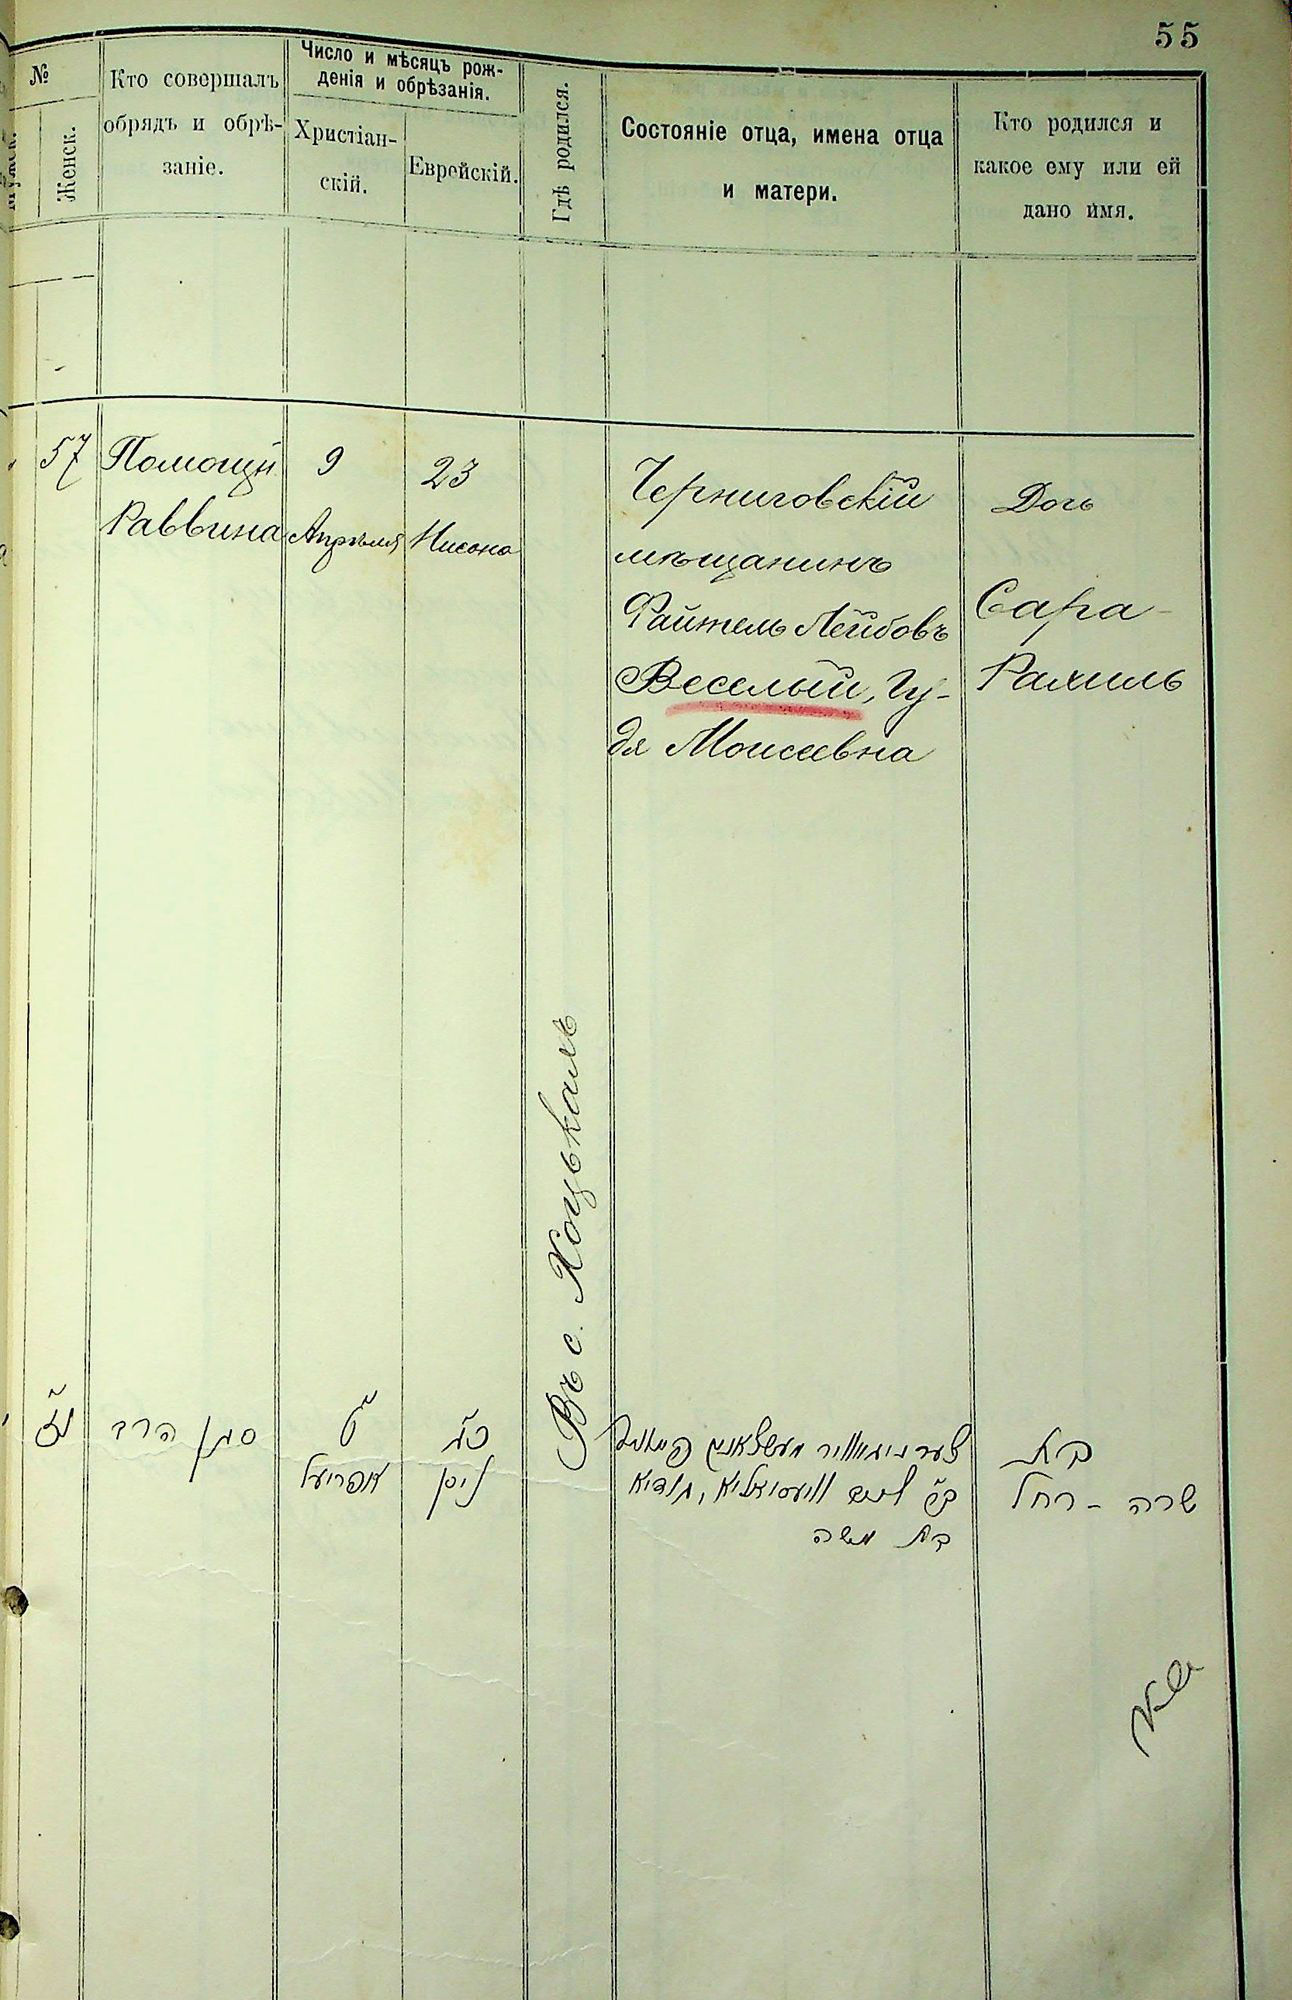 55
№
Мужск.
Женск.
Кто совершалъ
обрядъ и обрѣ-
заніе.
Число и мѣсяцъ рож-
денія и обрѣзанія.
Христіан-
скій.
Еврейскій.
Гдѣ родился.
Состояніе отца, имена отца
и матери.
Кто родился и
какое ему или ей
дано имя.
57
Помощн
Раввина
9
Апрѣля
23
Нисона
Въ с. Хоцькахъ
Черниговскій
мѣщанинъ
Файтель Лейбовъ
Веселый, Гу-
дя Моисеевна
Дочь
Сара-
Рахиль
נז
סגן הרב
ט
אפריעל
כג
ניסן
בת משה
בת
שרה - רחל